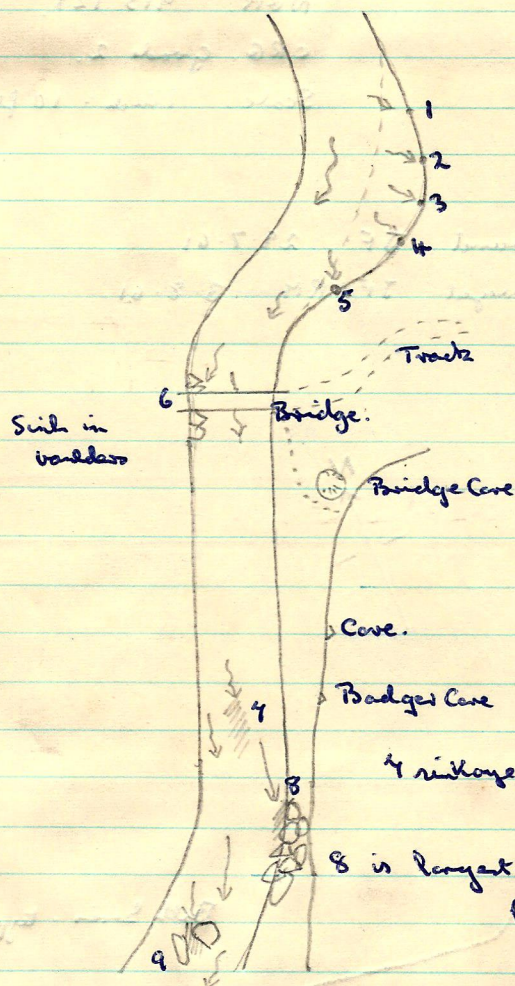 1
2
3
4
5
Track
6
Bridge.
Sink in
boulders
Bridge Cave
Cave.
Badger Cave
7
7 sinkage
8
8 is largest
9